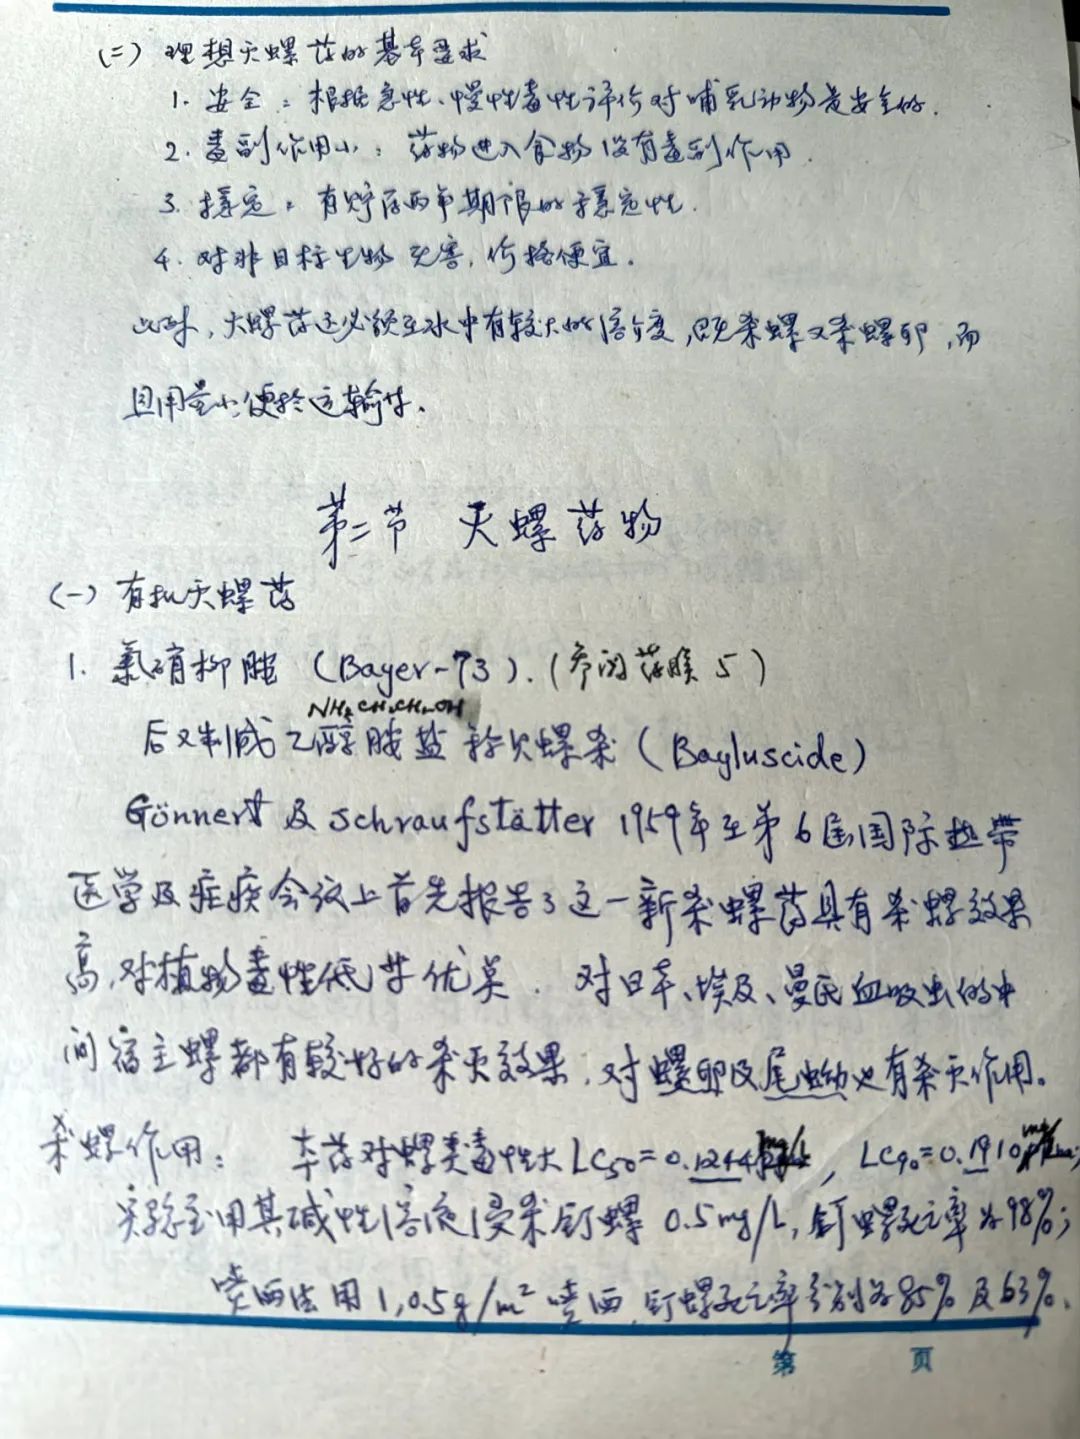 (二) 理想灭螺药的基本要求
1. 安全：根据急性、慢性毒性评价对哺乳动物是安全的.
2. 毒副作用小：药物进入食物没有毒副作用.
3. 稳定：有贮存两年期限的稳定性.
4. 对非目标生物无害，价格便宜.
此外，灭螺药还必须在水中有较大的溶介度，既杀螺又杀螺卵，而
且用量小，便於运输等.
第二节 灭螺药物
(一) 有机灭螺药
1. 氯硝柳胺 (Bayer-73). (参阅药膜 5)
NH₂CH₂CH₂OH
后又制成乙醇胺盐称灭螺杀 (Bayluscide)
Gönnert 及 Schraufstätter 1959年在第6届国际热带
医学及疟疾会议上首先报告了这一新杀螺药具有杀螺效果
高，对植物毒性低等优点. 对日本、埃及、曼氏血吸虫的中
间宿主螺都有较好的杀灭效果，对螺卵及尾蚴也有杀灭作用。
杀螺作用： 本药对螺类毒性大 LC₅₀=0.1244mg/L, LC₉₀=0.1910mg/L;
实验室用其碱性溶液浸杀钉螺 0.5mg/L, 钉螺死亡率为98%;
喷洒法用 1,0.5g/m² 喷洒，钉螺死亡率分别为85%及63%.
第 页